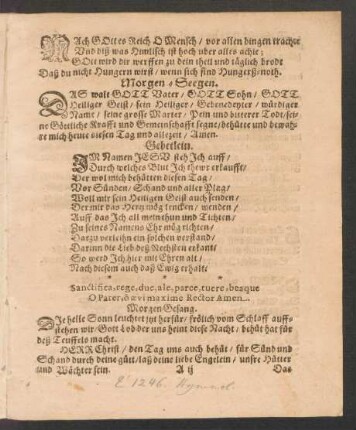 NAch GOttes Reich O Mensch / vor allen dingen trachte
Vnd diß was Himlisch ist hoch vber alles achte;
GOtt wird dir werffen zu dein theil und täglich brodt
Daß du nicht Hungern wirst / wenn sich find Hungersnoth.
Morgen-Seegen.
DAS walt GOTT Vater / GOTT Sohn / GOTT
Heiliger Geist / sein Heiliger / Gebenedeyter / würdiger
Name / seine grosse Marter / Pein und bitterer Todt / sei-
ne Göttliche Krafft und Gemeinschafft segne / behütte und bewah-
re mich heute diesen Tag und allezeit / Amen.
Gebetlein.
IM Namen JESV steh Ich auff /
Durch welches Blut Ich thewr erkaufft /
Der wol mich behütten diesen Tag /
Vor Sünden / Schand und aller Plag /
Woll mir sein Heiligen Geist auch senden /
Der mir das Herz mög lencken / wenden /
Auff das Ich all mein thun und Tichten /
Zu seines Namens Ehr mög richten /
Darzu verleihn ein solchen verstand /
Darinn die Lieb deß Nechsten erkant /
So werd Ich hier mit Ehren alt /
Nach diesem auch daß Ewig erhalt /
* * *
Sanctifica, rege, duc, ale, parce, tuere, beaque
O Pater, ô ævi maximo Rector Amen...
Morgen Gesang.
DIe helle Sonn leuchtet itzt herfür / frölich vom Schlaff auff-
stehen wir / Gott Lob der uns heint diese Nacht / behüt hat für
deß Teuffels macht.
HERR Christ / den Tag uns auch behüt / für Sünd und
Schand durch deine gütt / laß deine liebe Engelein / unsre Hütter
und Wächter sein.
A ij
Das
E 1246.